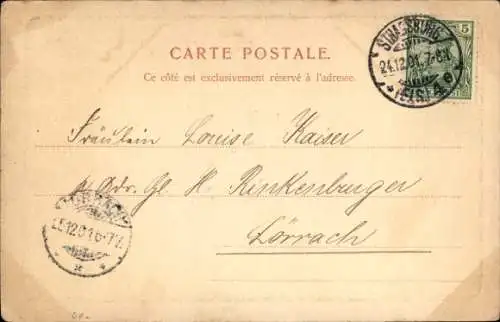 CARTE POSTALE.
Ce côté est exclusivement réservé à l'adresse.
STRASSBURG
24.12.01. 7-8V.
* (ELS) 4 e
5
Fräulein Louise Kaiser
p. Adr. Gl. H. Rinkenburger
Lörrach
25.12.01 6-7V.